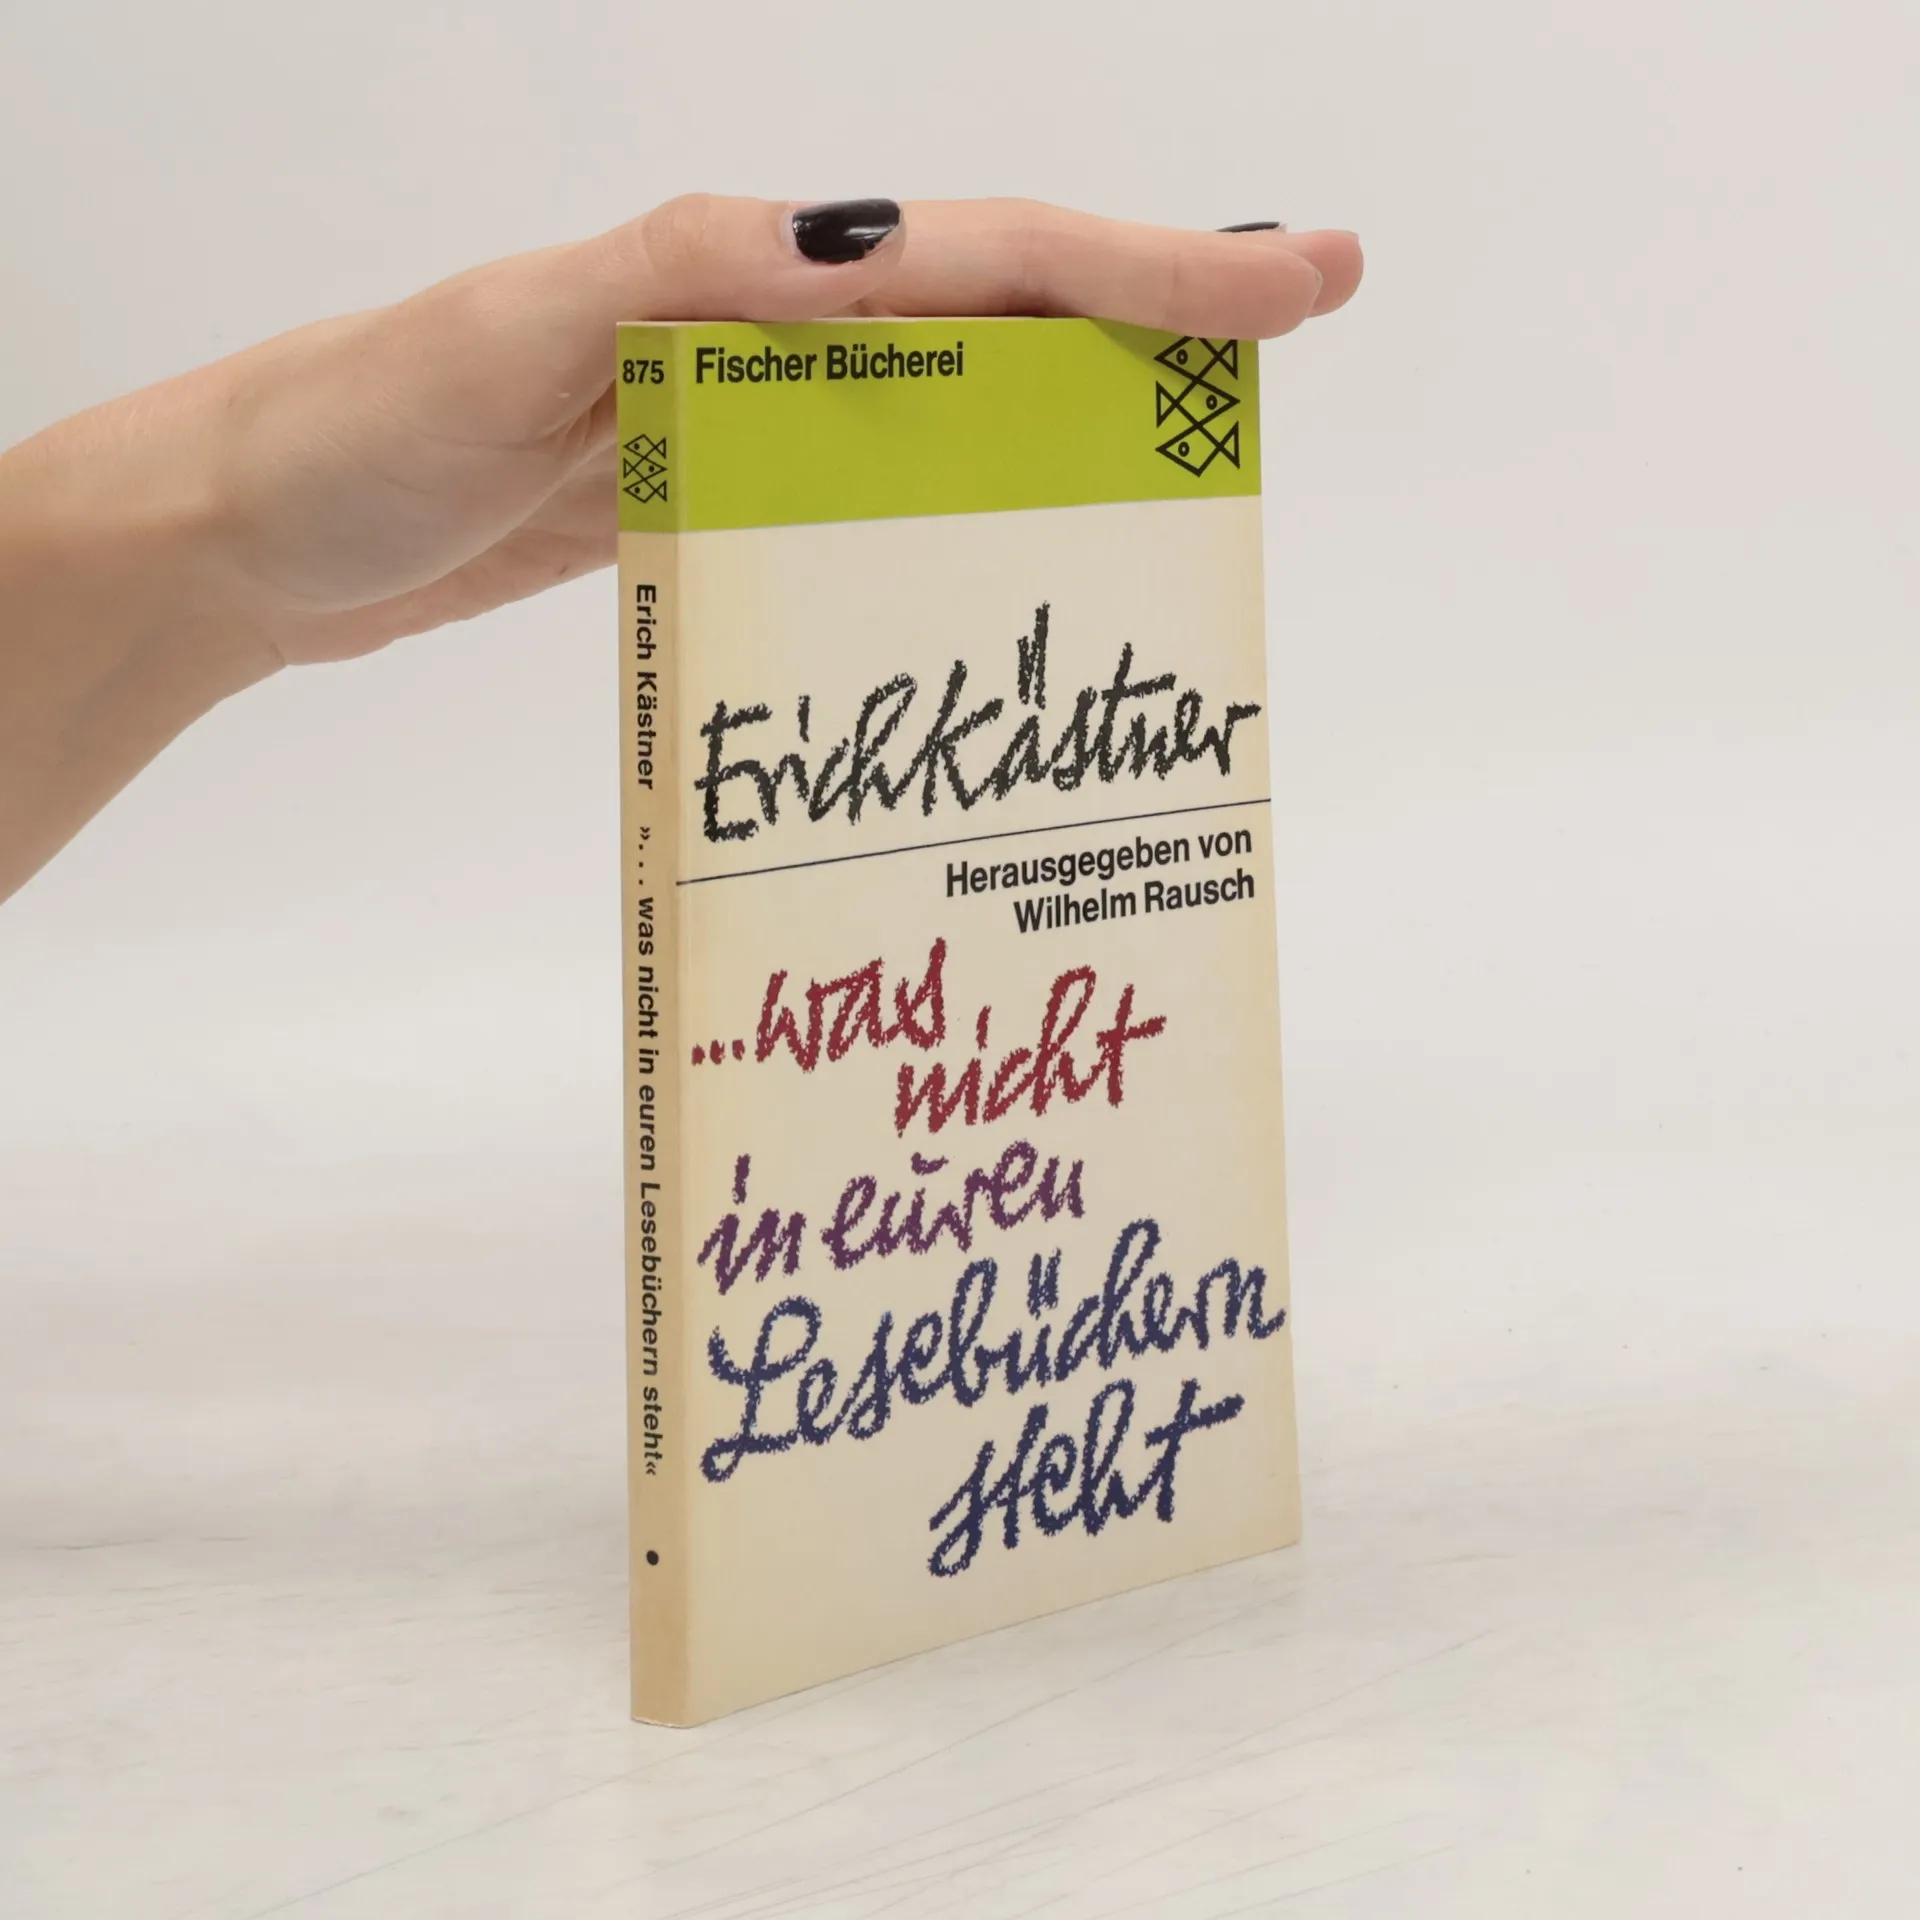 875
Erich Kästner »... was nicht in euren Lesebüchern steht«
Fischer Bücherei
Erich Kästner
Herausgegeben von
Wilhelm Rausch
...was
nicht
in euren
Lesebüchern
steht